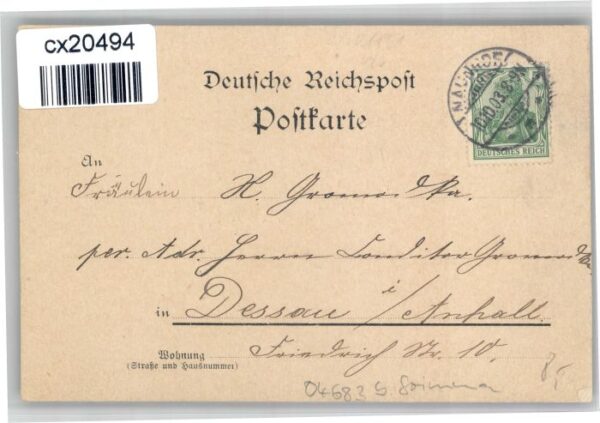 cx20494
Deutsche Reichspost
Postkarte
NAUNHOF
10.03.
DEUTSCHES REICH
An
Fräulein H. Gromodka.
per. Adr. Herrn Conditor Gromodka
in Dessau i/Anhalt.
Wohnung
(Straße und Hausnummer)
Friedrich Str. 10.
04683 b. Grimma